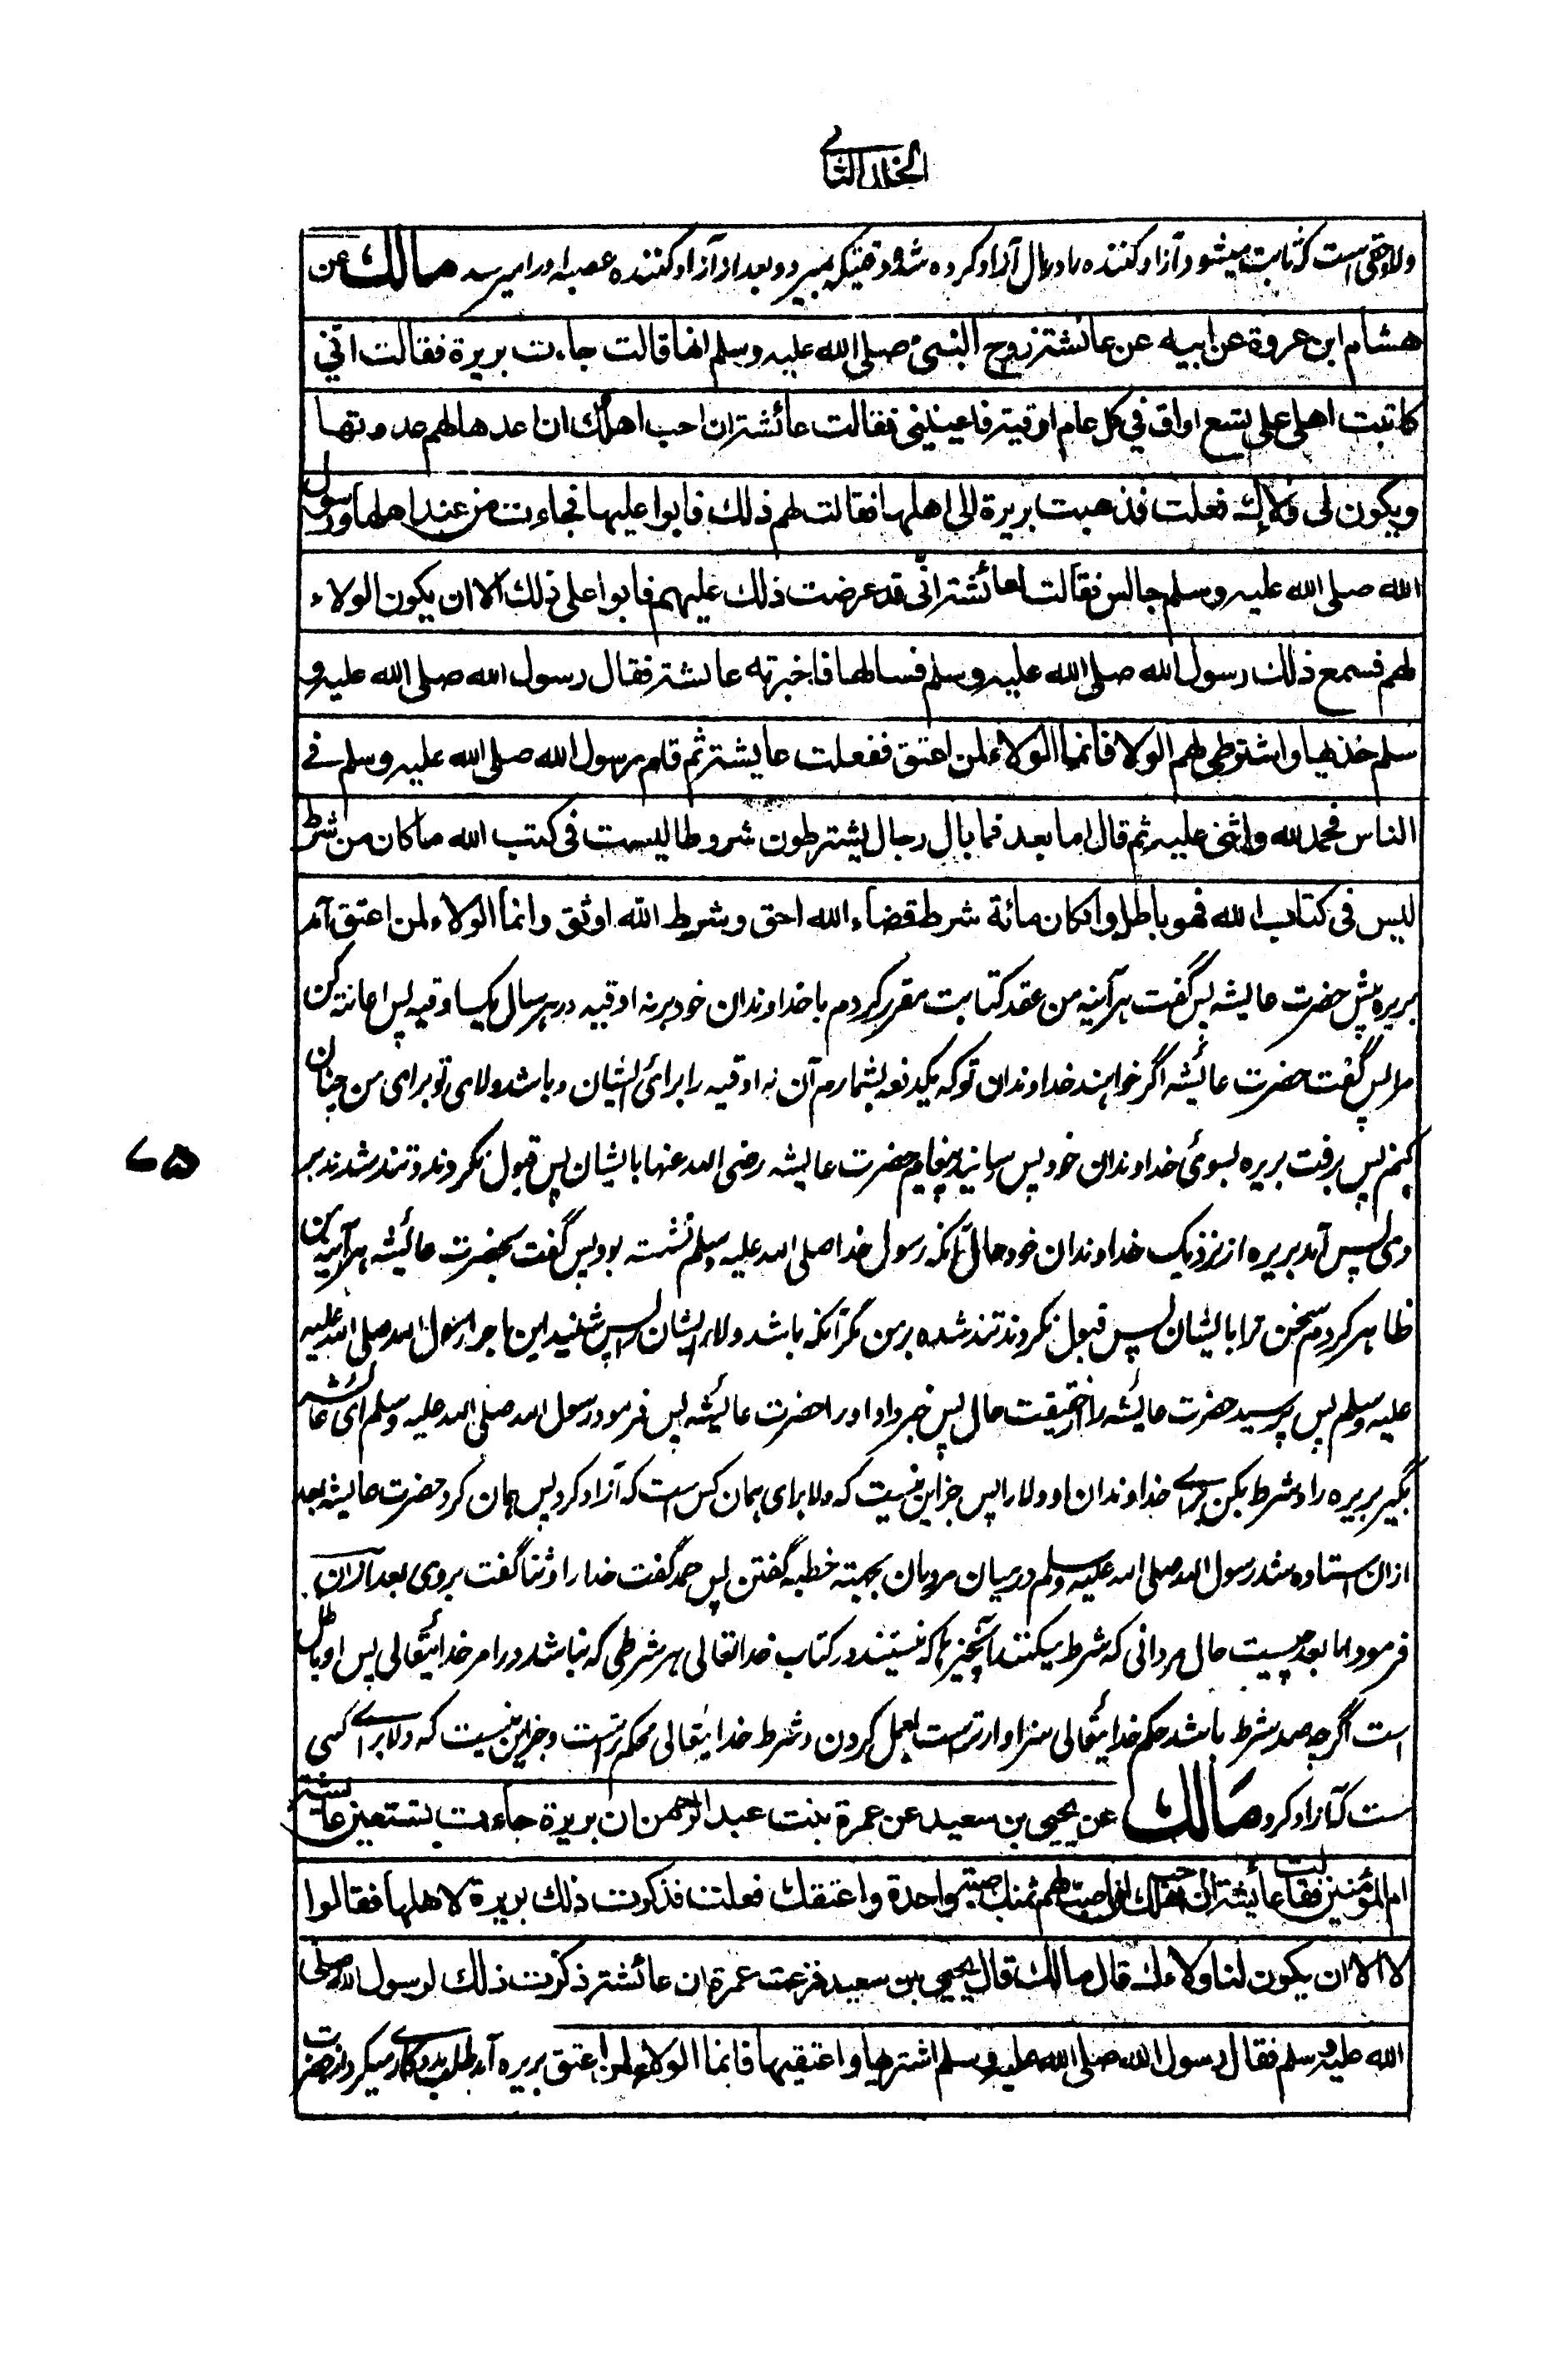 الجلد الثانے
ولا حقی است که ثابت میشود آزاد کننده را در مال آزاد کرده شده وقتیکه بمیرد و بعد از آزاد کننده عصبه او را میرسد مالك عن
هشام ابن عروة عن ابیه عن عائشة زوج النبی صلی الله علیه وسلم انها قالت جاءت بریرة فقالت انی
کاتبت اهلی علی تسع اواق فی کل عام اوقیة فاعینینی فقالت عائشة ان احب اهلك ان اعدها لهم عددتها
ویکون لی ولاءك فعلت فذهبت بریرة الی اهلها فقالت لهم ذلك فابوا علیها فجاءت من عند اهلها ورسول
الله صلی الله علیه وسلم جالس فقالت لعائشة انی قد عرضت ذلك علیهم فابوا علی ذلك الا ان یکون الولاء
لهم فسمع ذلك رسول الله صلی الله علیه وسلم فسالها فاخبرته عایشة فقال رسول الله صلی الله علیه و
سلم خذیها واشترطی لهم الولا فانما الولاء لمن اعتق ففعلت عایشة ثم قام رسول الله صلی الله علیه وسلم فے
الناس فحمد لله واثنی علیه ثم قال اما بعد فما بال رجال یشترطون شروطا لیست فی کتب الله ما کان من شرط
لیس فی کتاب الله فهو باطل وان کان مائة شرط قضاء الله احق وشرط الله اوثق وانما الولاء لمن اعتق آمد
بریره پیش حضرت عایشه پس گفت هر آینه من عقد کتابت مقرر کردم با خداوندان خود بر نه اوقیه در هر سال یک اوقیه پس اعانت کن
مرا پس گفت حضرت عائشه اگر خواهند خداوندان تو که یکدفعه بشمارم آن نه اوقیه را برائ ایشان و باشد ولای تو برای من چنان
کنم پس برفت بریره بسوئ خداوندان خود پس رسانید پیغام حضرت عایشه رضی الله عنها بایشان پس قبول نکردند و تند شدند بر
وی پس آمد بریره از نزدیک خداوندان خود حال آنکه رسول خدا صلی الله علیه وسلم نشسته بود پس گفت بحضرت عائیشه هر آینه من
ظاهر کردم سخن ترا بایشان پس قبول نکردند تند شده بر من مگر آنکه باشد ولا برا ایشان پس شنید این ماجرا رسول الله صلی الله علیه
علیه وسلم پس پرسید حضرت عایشه را از حقیقت حال پس خبر داد او را حضرت عائیشه پس فرمود رسول الله صلی الله علیه وسلم ای عائشه
بگیر بریره را و شرط بکن برے خداوندان او ولا را پس جز این نیست که ولا برای همان کس است که آزاد کرد پس همان کرد حضرت عایشه بعد
ازان استاده شد رسول الله صلی الله علیه وسلم درمیان مردمان بجهته خطبه گفتن پس حمد گفت خدا را و ثنا گفت بر وی بعد ازان
فرمود اما بعد چیست حال مردانی که شرط میکنند آنچیز ها که نیستند در کتاب خداتعالی هر شرطی که نباشد در امر خدایتعالی پس او باطل
است اگرچه صد شرط باشد حکم خدایتعالی سزاوار تر است بعمل کردن و شرط خدایتعالی محکم تر است و جز این نیست که ولا براے کسی
ست که آزاد کرد مالك عن یحیی بن سعید عن عمرة بنت عبدالرحمن ان بریرة جاءت تستعین عائشة
ام المؤمنین فقالت عایشة ان احب اهلك ان اصب لهم ثمنك صبة واحدة واعتقك فعلت فذکرت ذلك بریرة لاهلها فقالوا
لا الا ان یکون لنا ولاءك قال مالك قال یحیی بن سعید فزعمت عمرة ان عائشة ذکرت ذلك لرسول الله صلی
الله علیه وسلم فقال رسول الله صلی الله علیه وسلم اشتریها واعتقیها فانما الولاء لمن اعتق بریره آمد طلب مددگاری میکرد از حضرت
۷۵